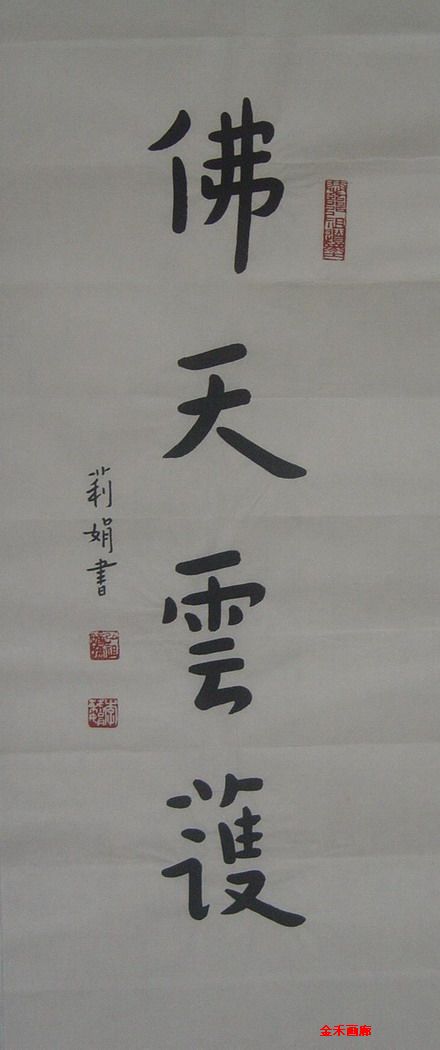 佛天雲護
莉娟書
金禾画廊